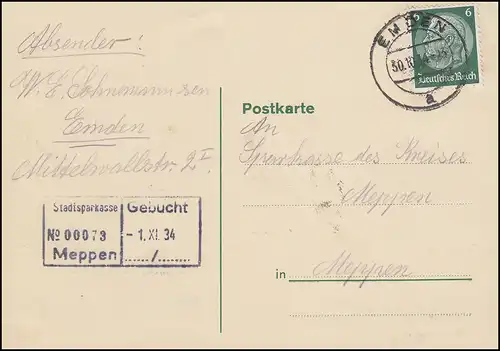 Absender:
W. E. sen
Emden
Mittelwallstr. 2 I
Stadtsparkasse
Nº 00073
Meppen
Gebucht
- 1. XI. 34
....../........
6
Deutsches Reich
EMDEN
30.10.
a
Postkarte
An
Sparkasse des Kreises
Meppen
in Meppen